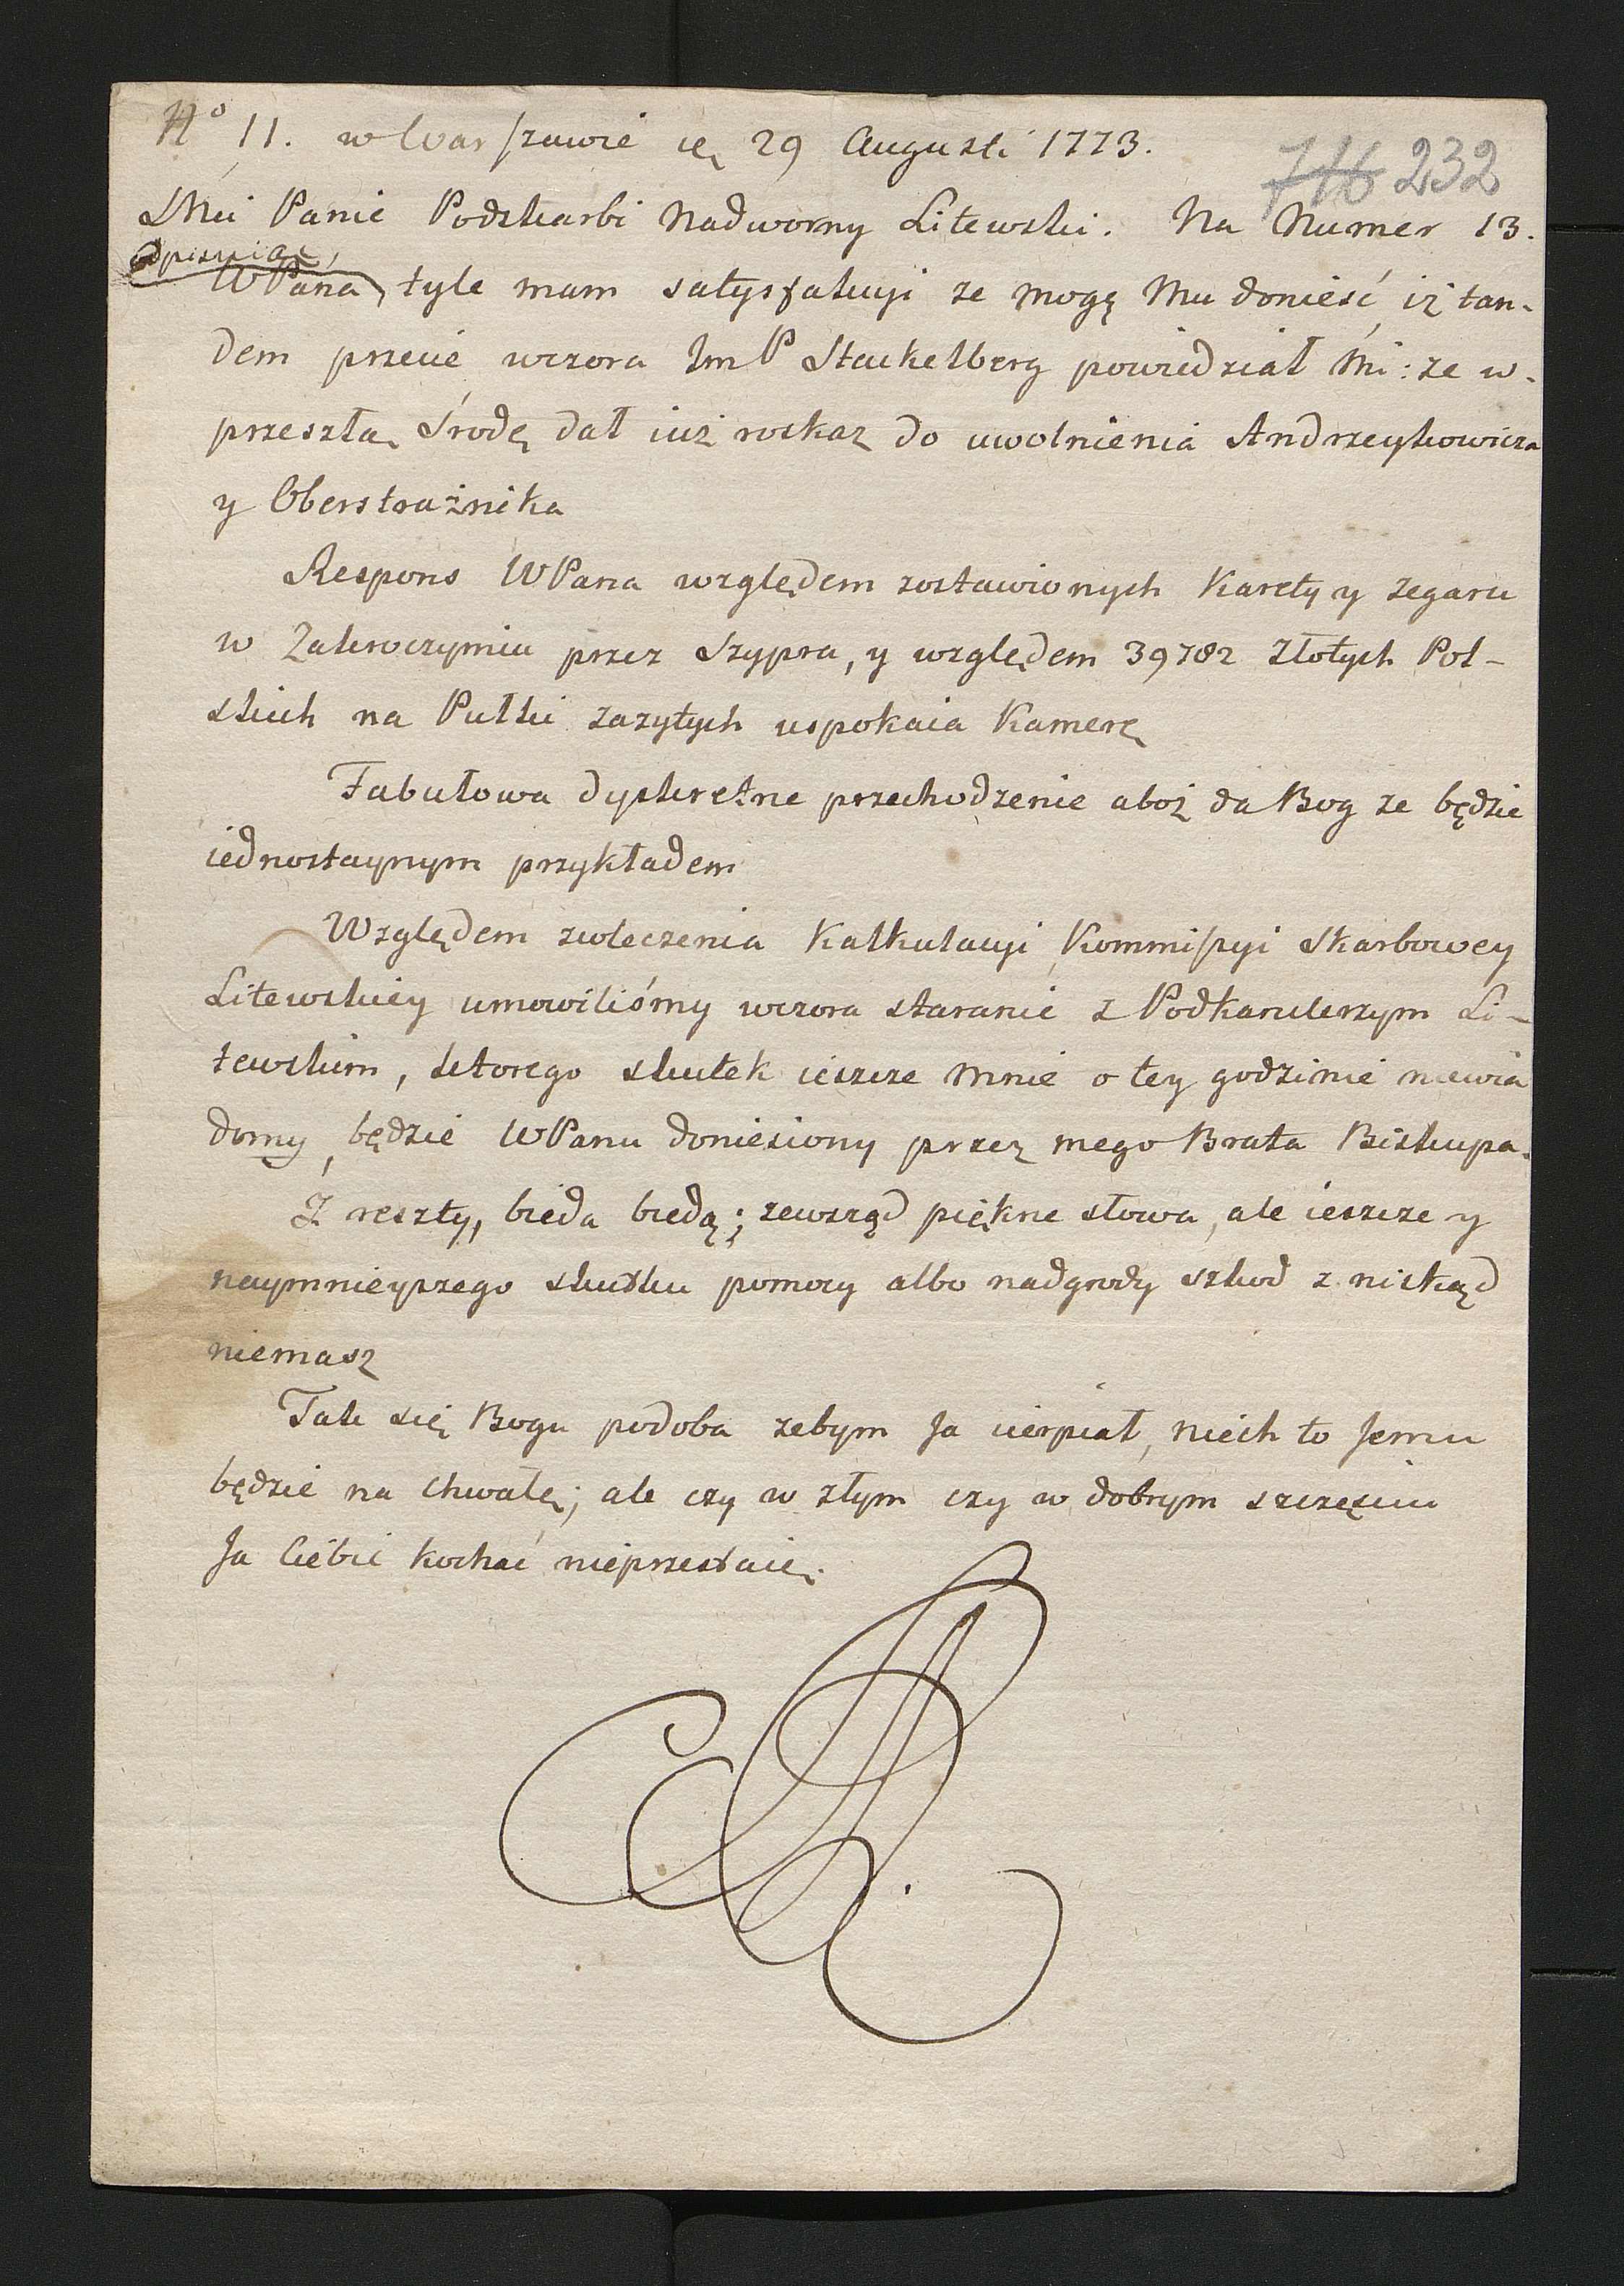 No 11. w Warszawie ię 29 Augusti 1773.
716 232
Mci Panie Podskarbi Nadworny Litewski. Na Numer 13.
odpisuiąc,
WPana, tyle mam satysfakcyi ze mogę Mu donieść, iż tan-
dem przecie wczora ImP Stackelberg powiedział mi: ze w-
przeszłą Środę dał iuż roskaz do uwolnienia Andrzeykowicza
y Oberstrażnika
Respons WPana względem zostawionych Karety y zegaru
w Zakroczymiu przez Szypra, y względem 39782 Złotych Pol-
skich na Pułki zazytych uspokaia Kamerę
Tabułowa dyskretne przechodzenie aboż da Bog ze będzie
iednostaynym przykładem
Względem zwleczenia Kalkulacyi Kommissyi Skarbowey
Litewskiey umowiliśmy wczora staranie z Podkanclerzym Li-
tewskim, ktorego skutek ieszcze mnie o tey godzinie niewia
domy, będzie WPanu doniesiony przez mego Brata Biskupa.
Z reszty, bieda biedą; zewsząd piękne słowa, ale ieszcze y
naymnieyszego skutku pomocy albo nadgrody szkod z niskąd
niemasz
Tak się Bogu podoba zebym Ja cierpiał, niech to Jemu
będzie na chwałę; ale czy w złym czy w dobrym szczęściu
Ja Ciebie kochać nieprzestaię.